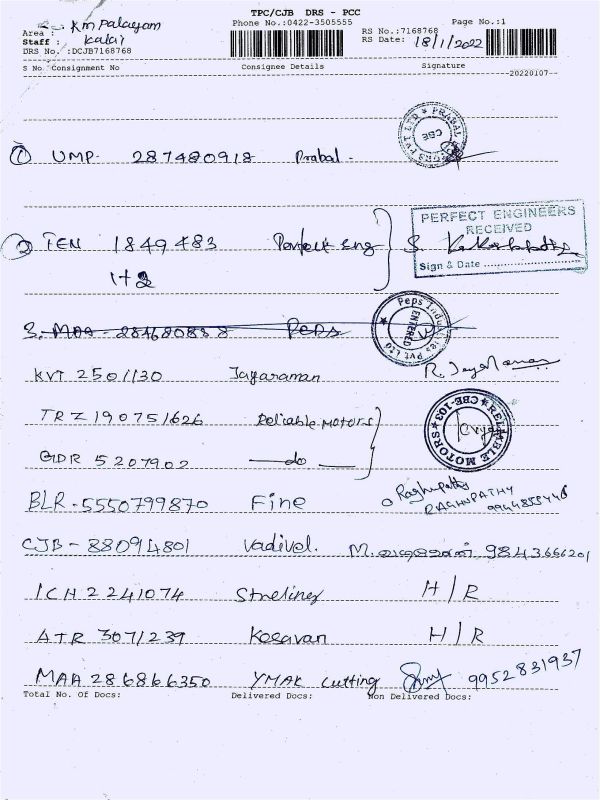 TPC/CJB DRS - PCC
Area : Km Palayam Phone No.:0422-3505555 RS No.:7168768 Page No.:1
Staff : Kalai RS Date: 18/1/2022
DRS No. :DCJB7168768
S No Consignment No Consignee Details Signature
20220107
PRABAL PVT LTD CBE
1 UMP- 287480918 Prabal -
PERFECT ENGINEERS
RECEIVED
2 TEN 1849483 Perfect Eng S.
Sign & Date
1+2
Peps Industries Pvt Ltd ENTERED
3. MAA - 284680838 PEPS
KVT 2501130 Jayaraman R. Jayaraman
TRZ 190751626 Reliable Motors
RELIABLE MOTORS CBE-103
GDR 5207902 — do —
BLR - 5550799870 Fine Raghupathy
RAGHUPATHY
9944855446
CJB - 88094801 Vadivel. M. 9843666201
ICH 2241074 H/R
ATR 3071239 Kesavan H/R
MAA 286866350 YMAK cutting 9952831937
Total No. Of Docs: Delivered Docs: Non Delivered Docs: